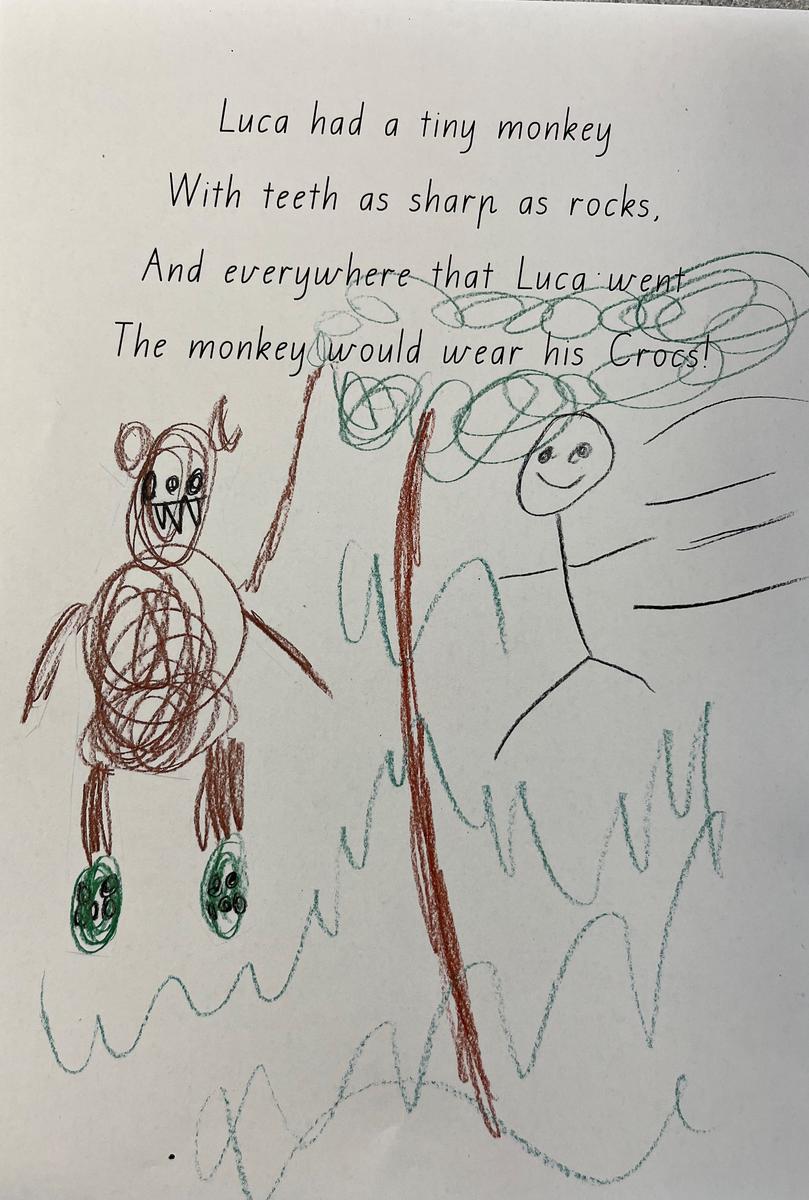 Luca had a tiny monkey
With teeth as sharp as rocks,
And everywhere that Luca went
The monkey would wear his Crocs!